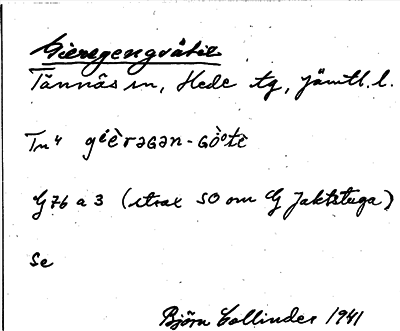 Gieregengvåtie
Tännäs sn, Hede tg, Jämtl. l.
Tn4 gièrəgən-Gòotè
G 76 a 3 (strax SO om G Jaktstuga)
Se
Björn Collinder 1941